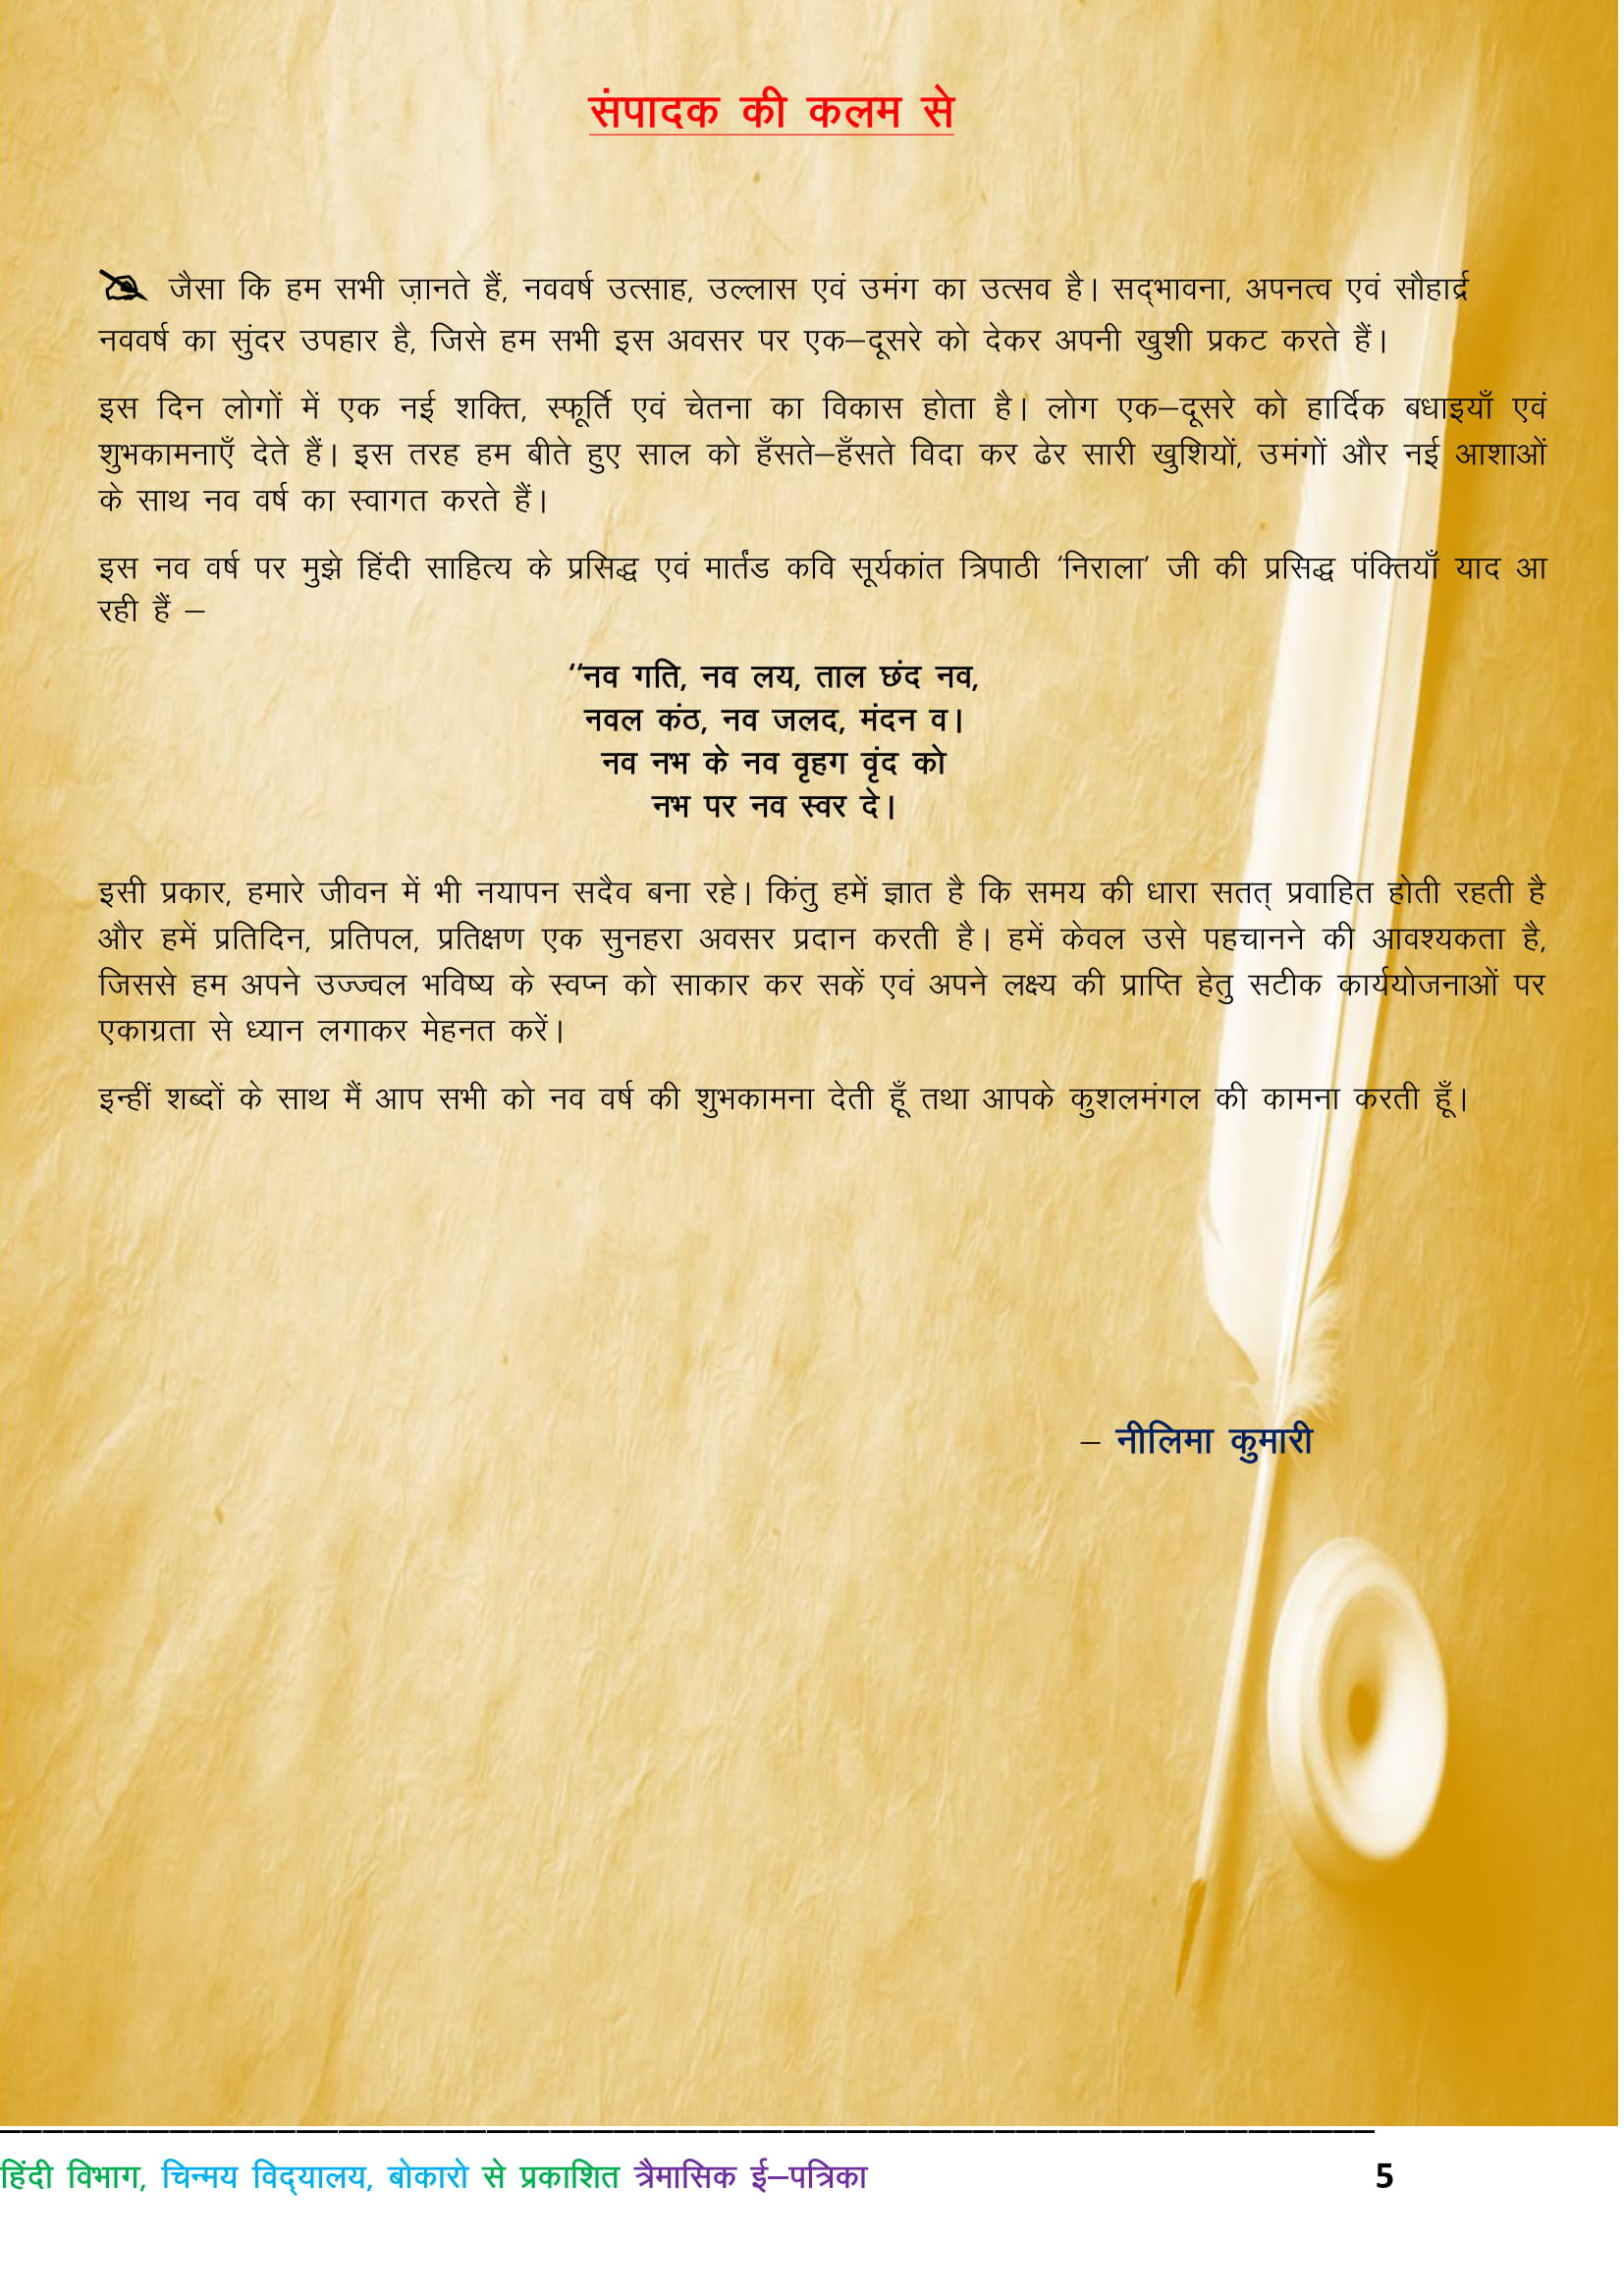 संपादक की कलम से
जैसा कि हम सभी ज़ानते हैं, नववर्ष उत्साह, उल्लास एवं उमंग का उत्सव है। सद्‌भावना, अपनत्व एवं सौहार्द्र
नववर्ष का सुंदर उपहार है, जिसे हम सभी इस अवसर पर एक–दूसरे को देकर अपनी खुशी प्रकट करते हैं।
इस दिन लोगों में एक नई शक्ति, स्फूर्ति एवं चेतना का विकास होता है। लोग एक–दूसरे को हार्दिक बधाइयाँ एवं
शुभकामनाएँ देते हैं। इस तरह हम बीते हुए साल को हँसते–हँसते विदा कर ढेर सारी खुशियों, उमंगों और नई आशाओं
के साथ नव वर्ष का स्वागत करते हैं।
इस नव वर्ष पर मुझे हिंदी साहित्य के प्रसिद्ध एवं मार्तंड कवि सूर्यकांत त्रिपाठी ‘निराला’ जी की प्रसिद्ध पंक्तियाँ याद आ
रही हैं –
“नव गति, नव लय, ताल छंद नव,
नवल कंठ, नव जलद, मंदन व।
नव नभ के नव वृहग वृंद को
नभ पर नव स्वर दे।
इसी प्रकार, हमारे जीवन में भी नयापन सदैव बना रहे। किंतु हमें ज्ञात है कि समय की धारा सतत् प्रवाहित होती रहती है
और हमें प्रतिदिन, प्रतिपल, प्रतिक्षण एक सुनहरा अवसर प्रदान करती है। हमें केवल उसे पहचानने की आवश्यकता है,
जिससे हम अपने उज्ज्वल भविष्य के स्वप्न को साकार कर सकें एवं अपने लक्ष्य की प्राप्ति हेतु सटीक कार्ययोजनाओं पर
एकाग्रता से ध्यान लगाकर मेहनत करें।
इन्हीं शब्दों के साथ मैं आप सभी को नव वर्ष की शुभकामना देती हूँ तथा आपके कुशलमंगल की कामना करती हूँ।
– नीलिमा कुमारी
हिंदी विभाग, चिन्मय विद्‌यालय, बोकारो से प्रकाशित त्रैमासिक ई–पत्रिका 5